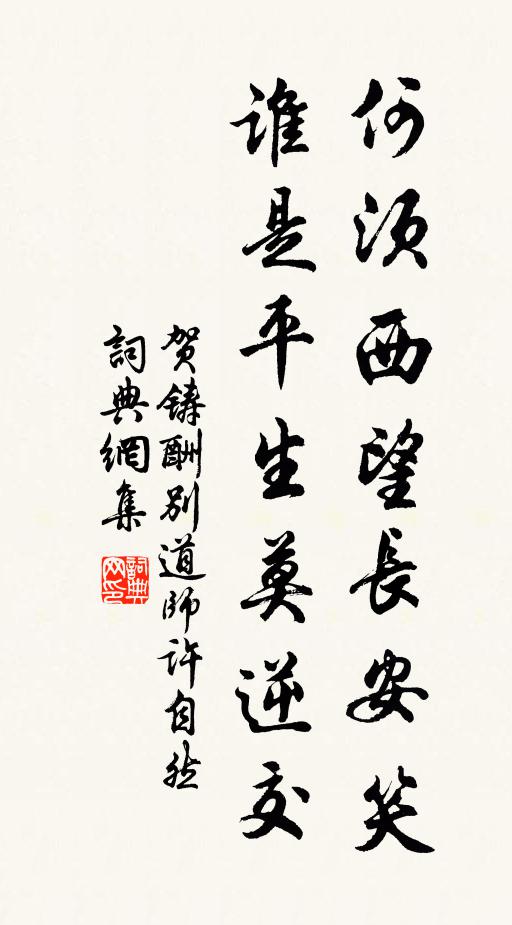 何须西望長安笑
誰是平生莫逆交
贺鑄酬别道師许自然
詞典網集
詞典网印